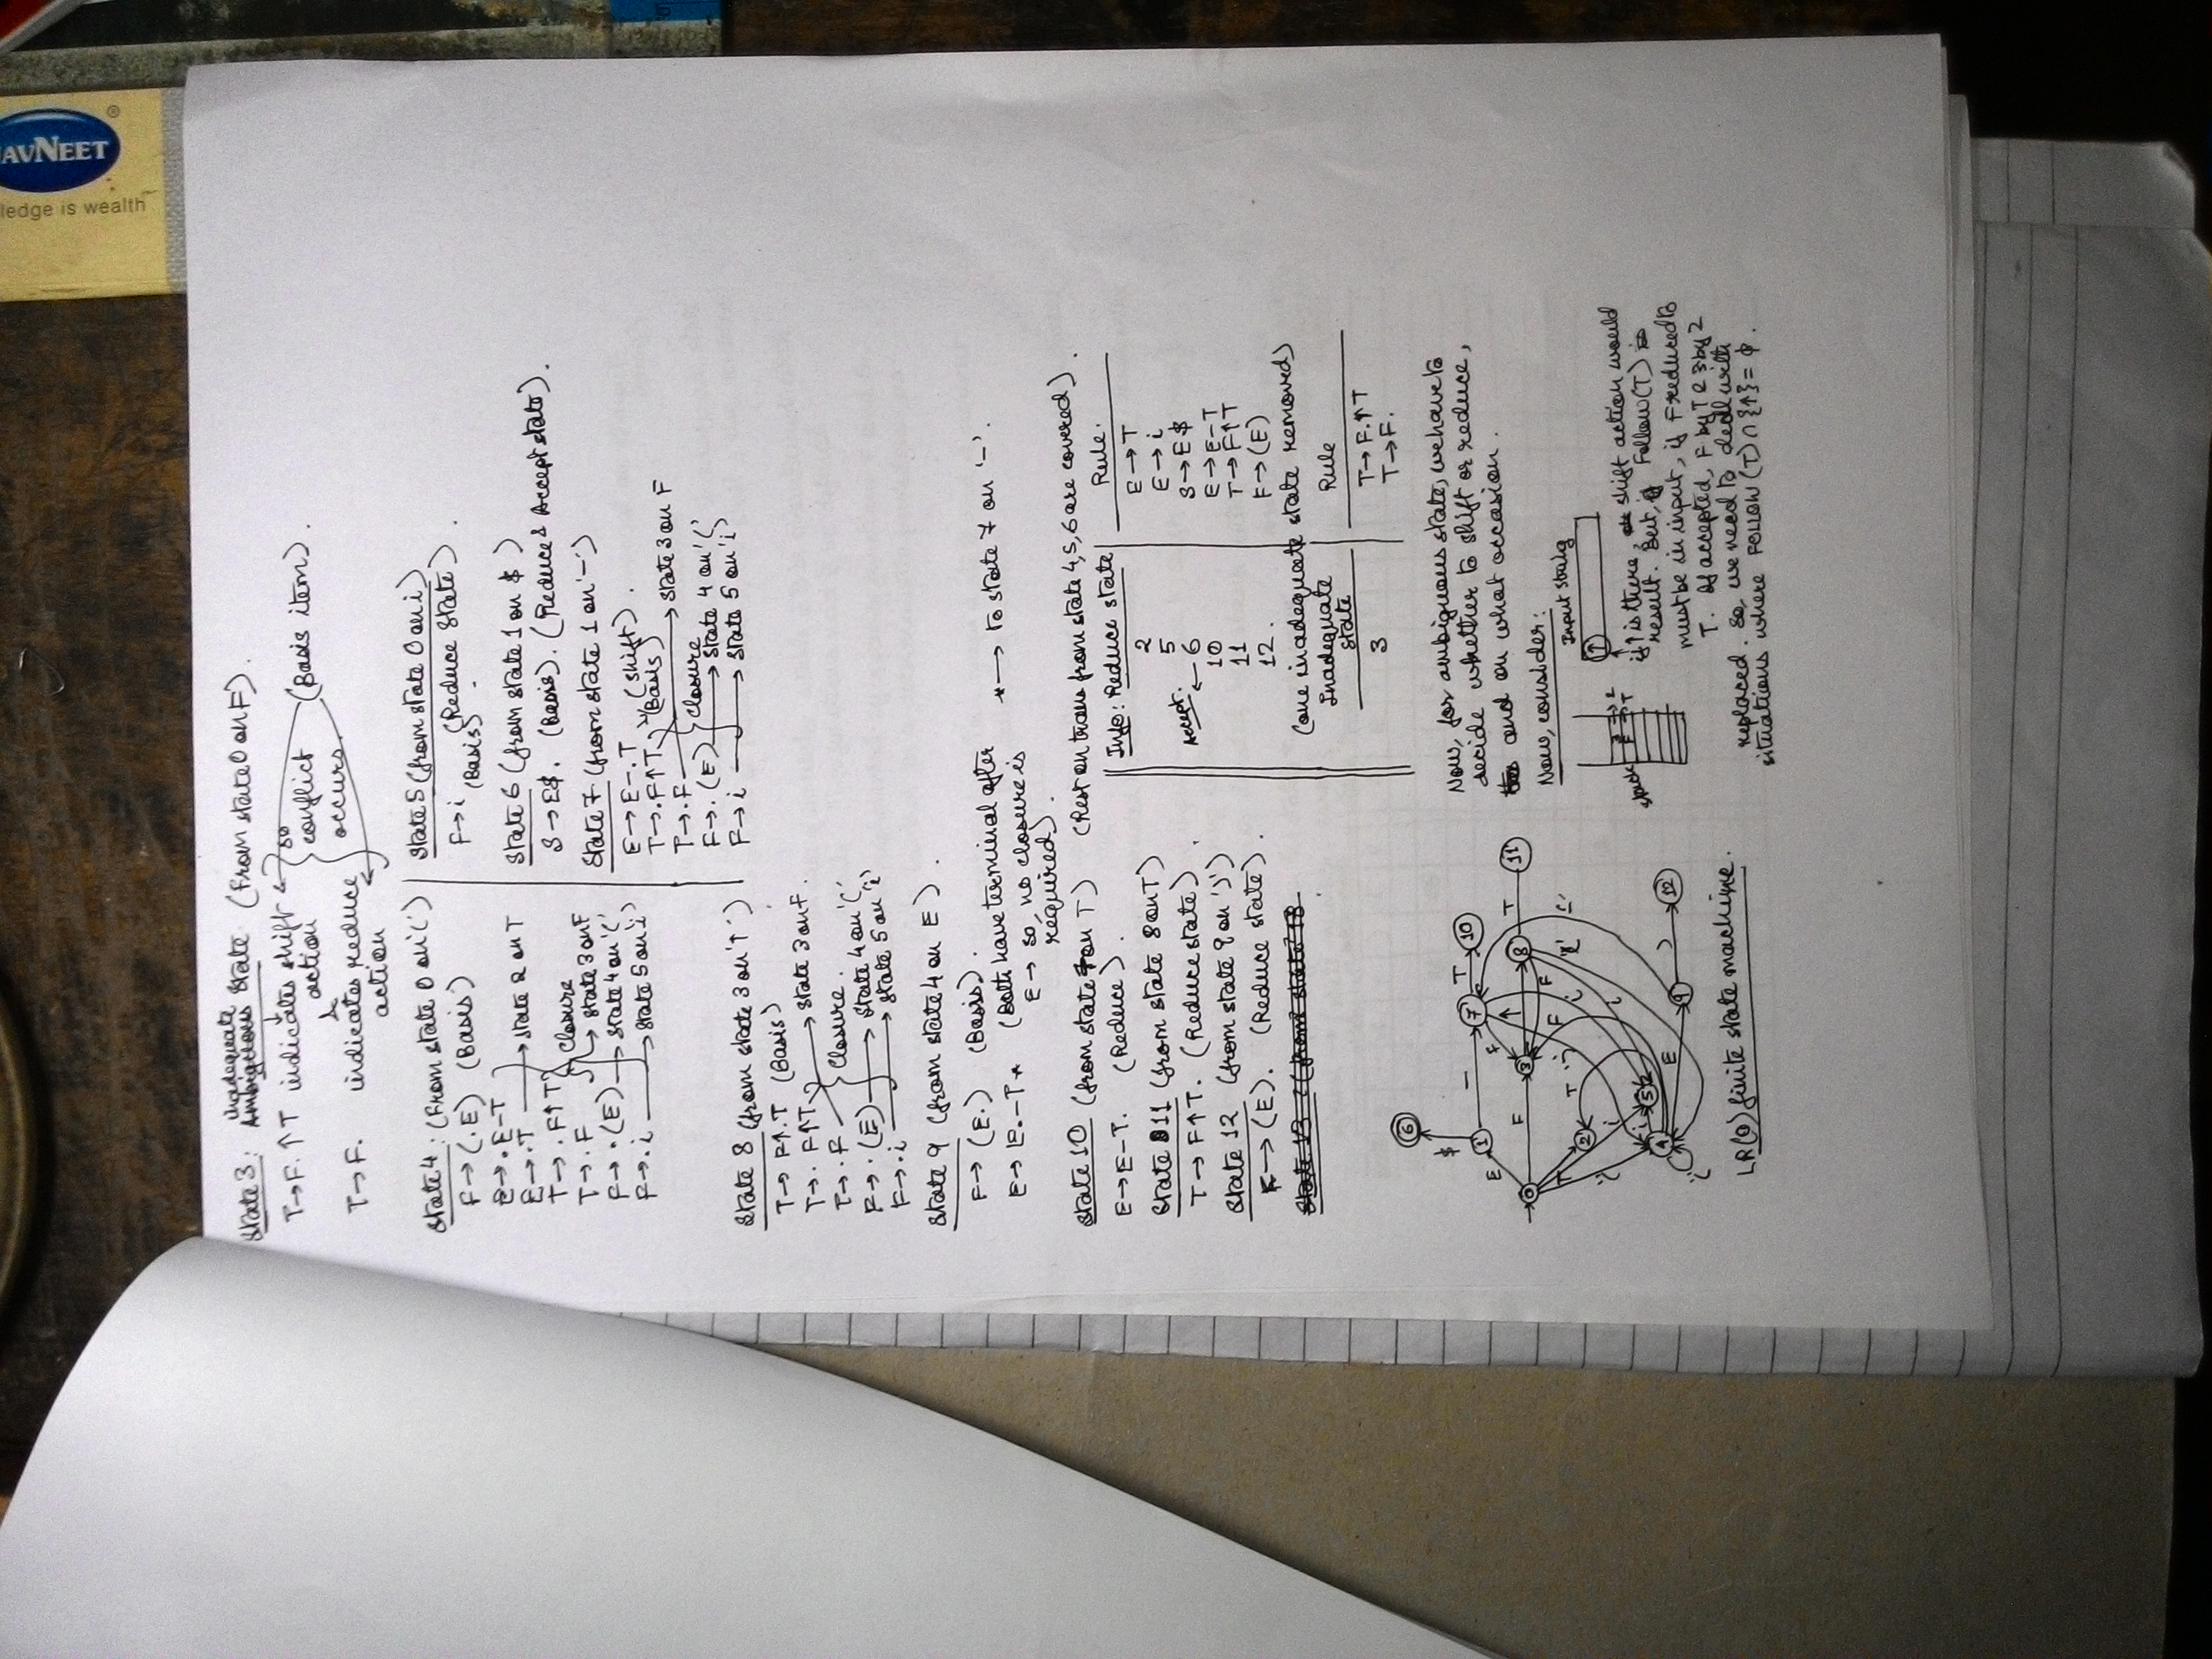 NAVNEET
®
ledge is wealth
State 3: inadequate Ambiguous State (From state 0 on F).
T→F.↑T indicates shift action
so conflict occurs.
(Basis item).
&
T→F. indicates reduce action
State 4: (From state 0 on '(')
F→(.E) (Basis)
E→.E-T
E→.T → state 2 on T
T→.F↑T
Closure
T→.F → state 3 on F
F→.(E) → state 4 on '('
F→.i → state 5 on 'i'
State 5 (from state 0 on i)
F→i (Reduce State).
(Basis)
State 6 (from state 1 on $)
S→E$. (Basis). (Reduce & Accept state).
State 7 (from state 1 on '-')
E→E-.T (shift).
T→.F↑T (Basis)
T→.F → state 3 on F
Closure
F→.(E) → state 4 on '('
F→i → state 5 on 'i'
State 8 (from state 3 on '↑')
T→F↑.T (Basis)
T→.F↑T → state 3 on F.
T→.F Closure.
F→.(E) → state 4 on '('
F→.i → state 5 on 'i'
State 9 (from state 4 on E).
F→(E.) (Basis).
E→E.-T* (Both have terminal after E→ so, no closure is required).
*→ to state 7 on '-'.
State 10 (from state 7 on T) (Rest on trans from state 4,5,6 are covered).
E→E-T. (Reduce).
State 11 (from state 8 on T)
T→F↑T. (Reduce state).
State 12 (from state 9 on ')')
F→(E). (Reduce state).
State 13 : (from state 13
Info: Reduce state Rule.
2 E→T
5 E→i
Accept. ← 6 S→E$
10 E→E-T
11 T→F↑T
12. F→(E)
(one inadequate state removed)
Inadequate state Rule
3 T→F.↑T
T→F.
6
$
E 1 - 7 T 10
0 F 3 ↑ 8 T 11
F F
T 2 T
i i i
4 i 5
E 9 ) 12
LR(0) finite state machine.
Now, for ambiguous state, we have to
decide whether to shift or reduce,
and on what occasion.
Now, consider:
Input string
↑
stack
if ↑ is there, shift action would
result. But, if Follow(T) is
must be in input, if F reduced to
T. If accepted, F by T & 3 by 2
replaced. So, we need to deal with
situations where FOLLOW(T)∩{↑}=ϕ.